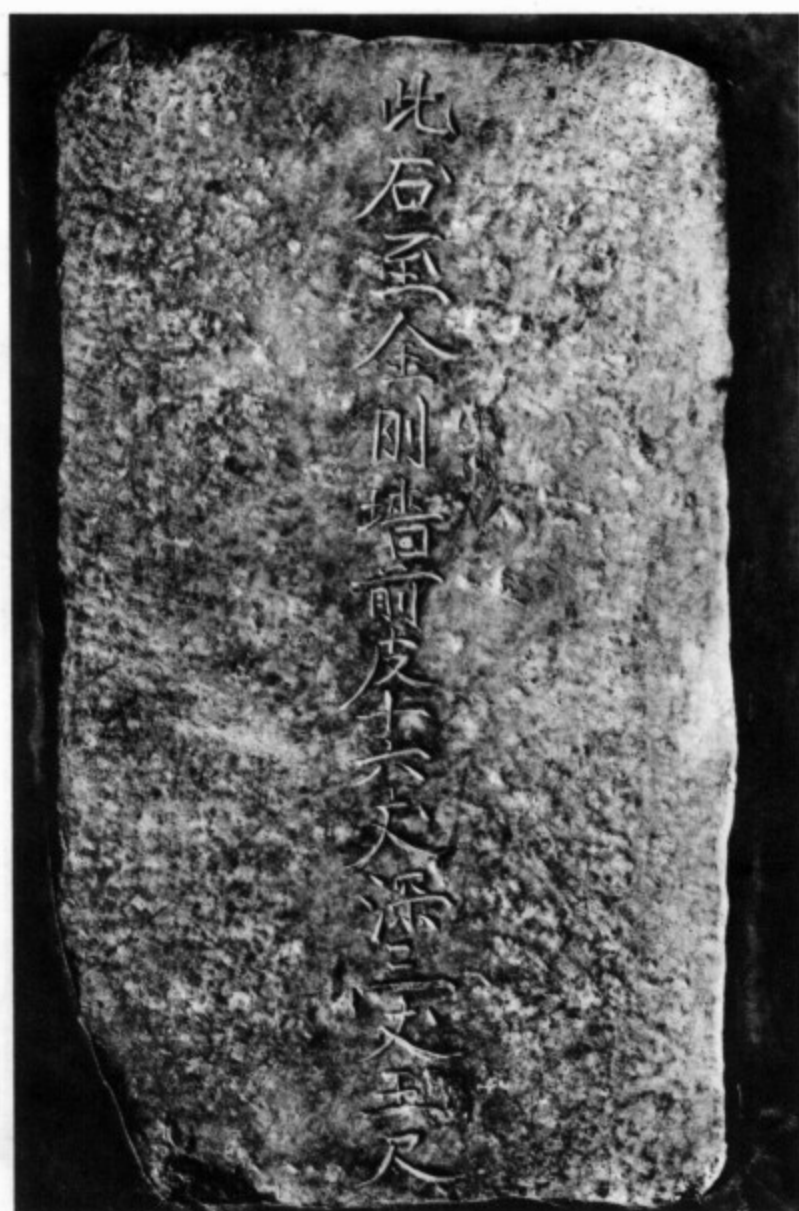 此石至金刚墙前皮十六丈深三丈五尺